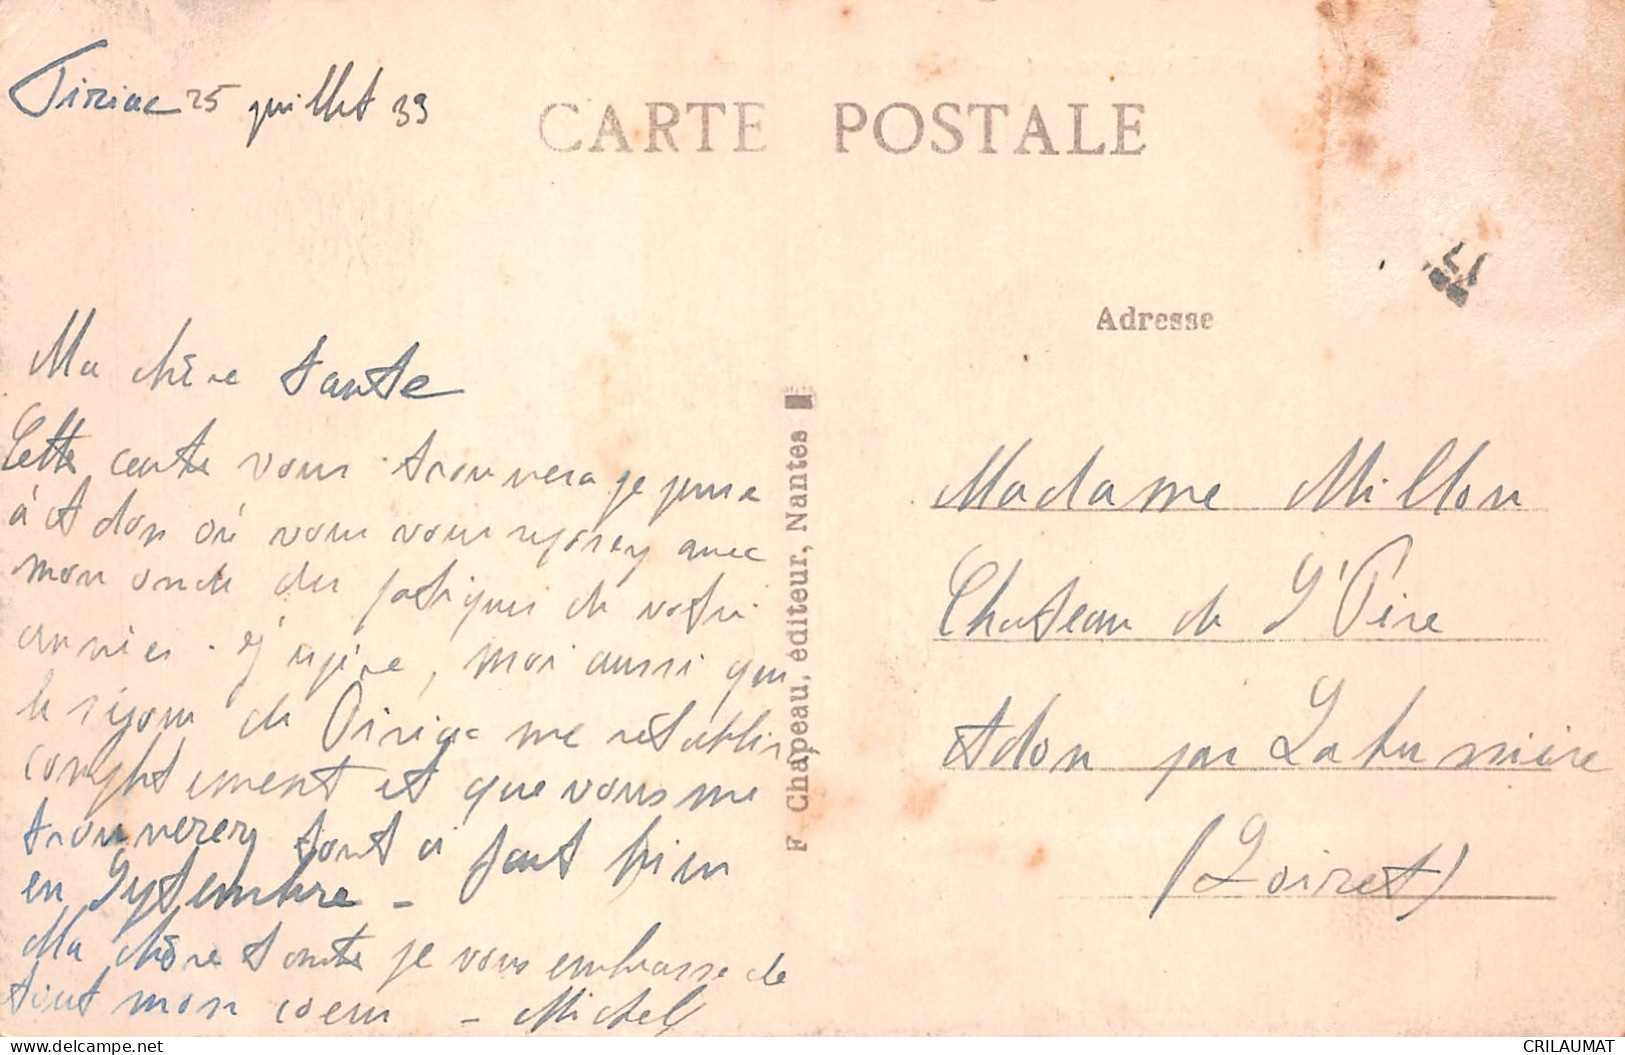 Piriac 25 juillet 39
CARTE POSTALE
Ma chère tante
Cette carte vous trouvera je pense
à Adon où vous vous reposez avec
mon oncle des fatigues de votre
année. J'espère, moi aussi que
le séjour de Piriac me rétablira
complètement et que vous me
trouverez tout à fait bien
en Septembre -
Ma chère tante je vous embrasse de
tout mon coeur - Michel
F Chapeau, éditeur, Nantes
Adresse
Madame Millon
Chateau de St Père
Adon par La bussière
(Loiret)
CRILAUMAT